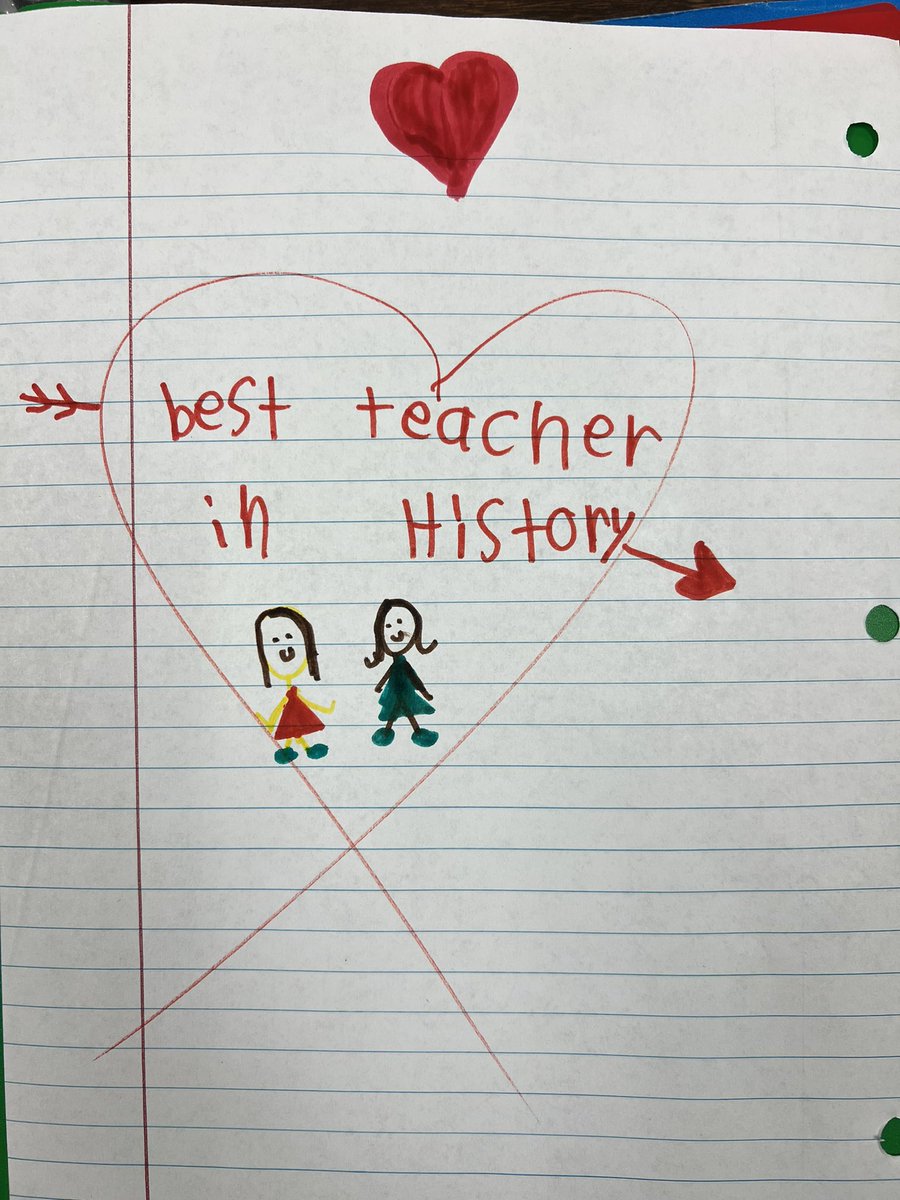 best teacher
in History